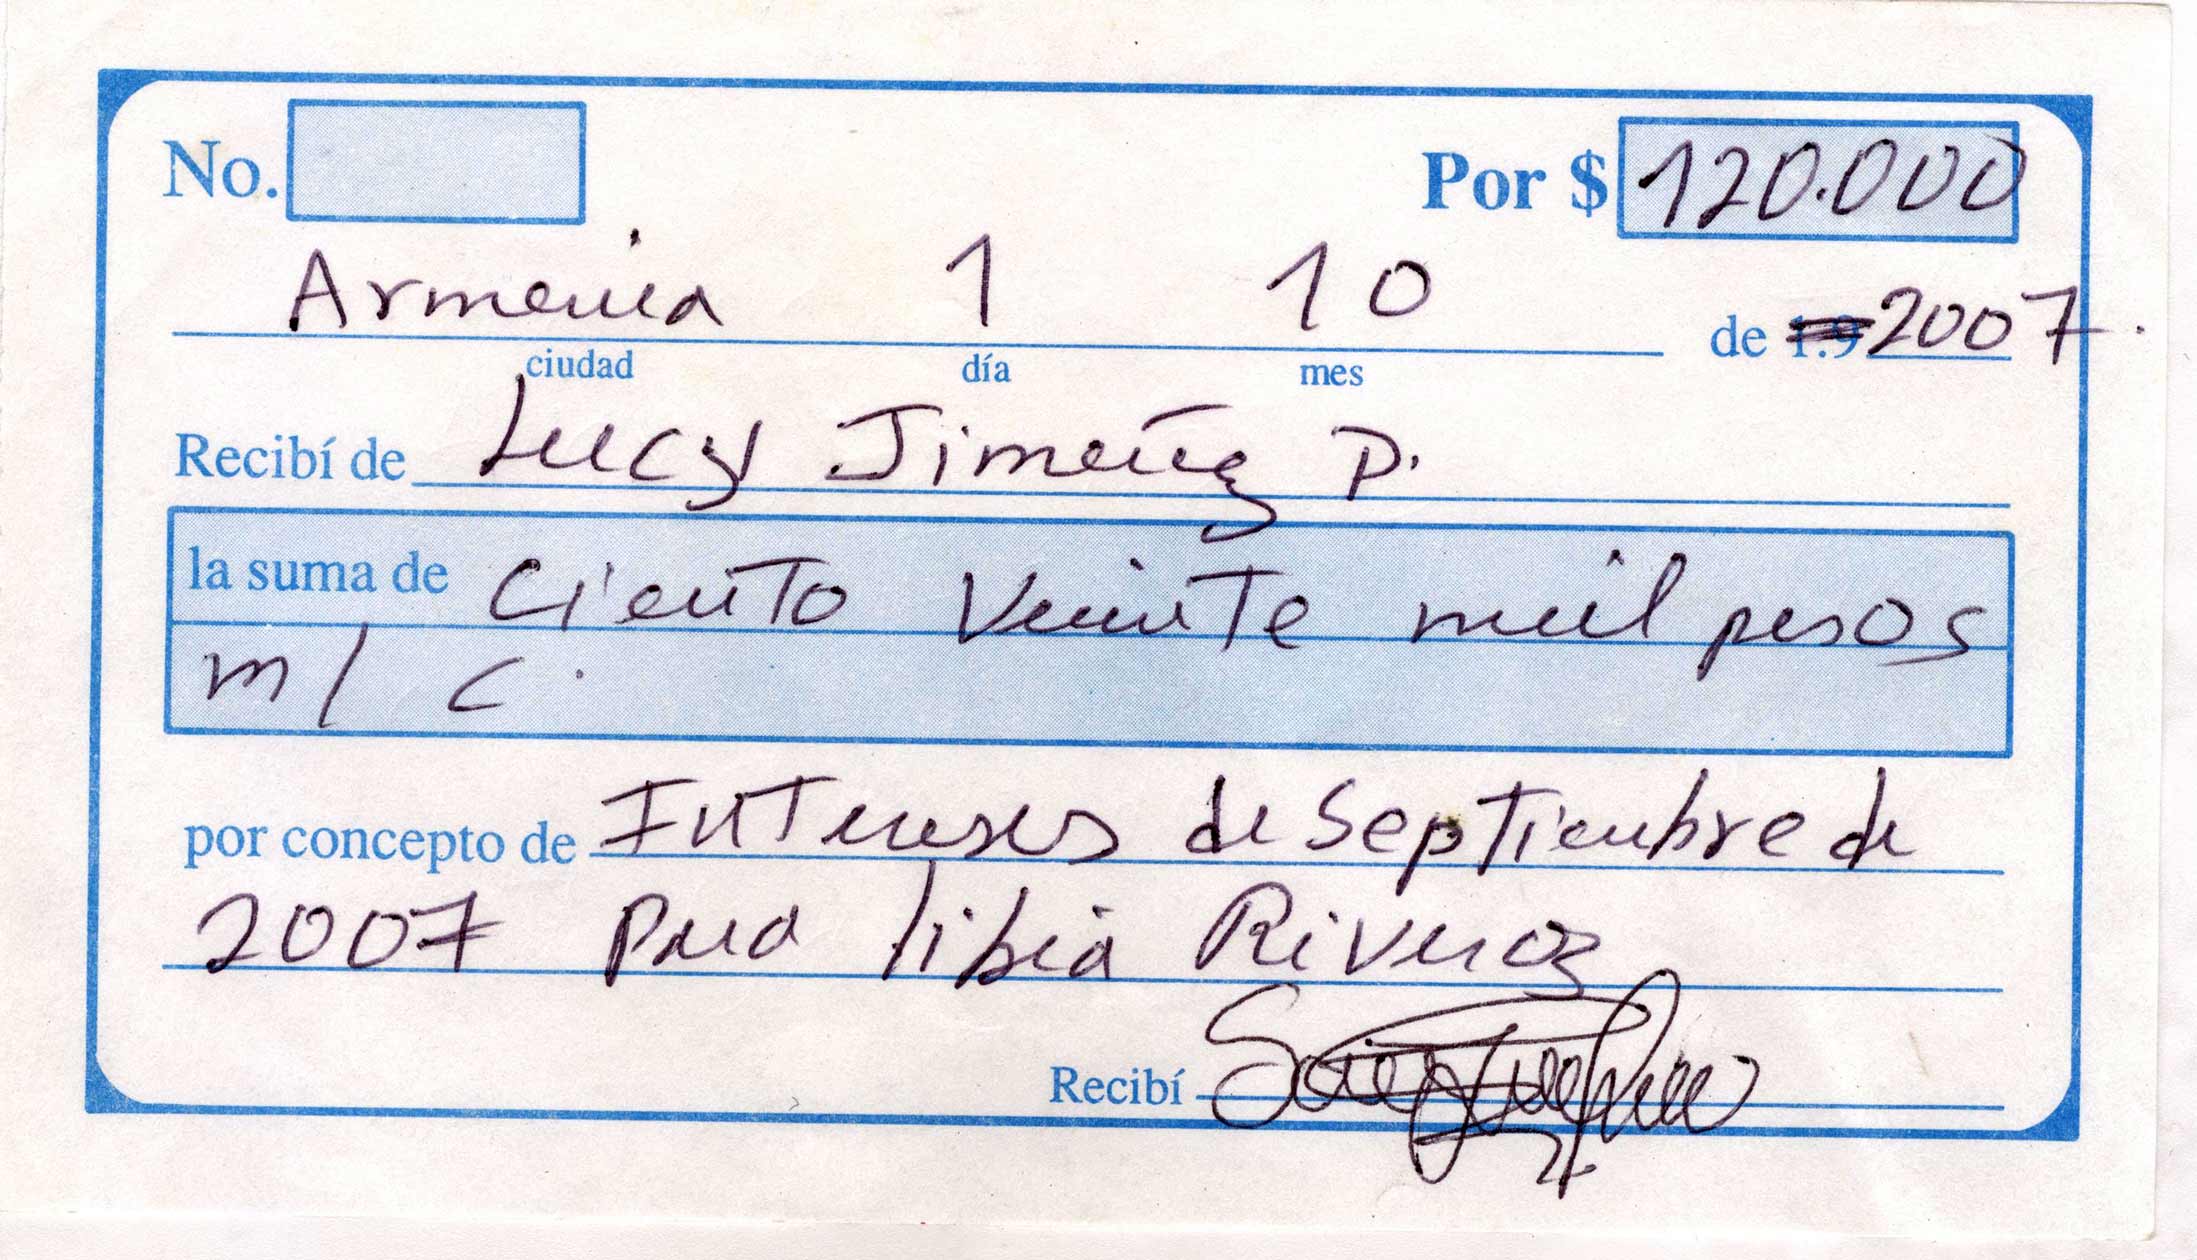 No. Por $ 120.000
Armenia 1 10 de 1.9 2007.
ciudad día mes
Recibí de Lucy Jimenez P.
la suma de Ciento Veinte mil pesos
m/c.
por concepto de Intereses de Septiembre de
2007 para libia Riveros
Recibí